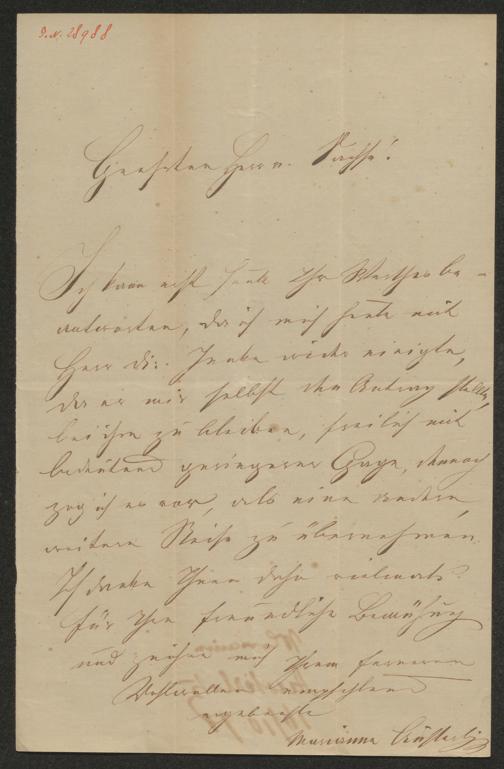 J.N. 28988
Geehrter Herr v. Sachse!
Ich kann erst heute Ihr Werthes be-
antworten, da ich mich heute mit
Herr Dir. wieder einigte,
da er mir selbst den Antrag stellte,
bei ihm zu bleiben, freilich mit
bedeutend geringerer Gage, dennoch
zog ich es vor, als eine andere
weitere Reise zu übernehmen.
Ich danke Ihnen daher vielmals
für Ihre freundliche Bemühung
und zeichne mich Ihrem ferneren
Wohlwollen empfehlend
ergebenste
Marianna